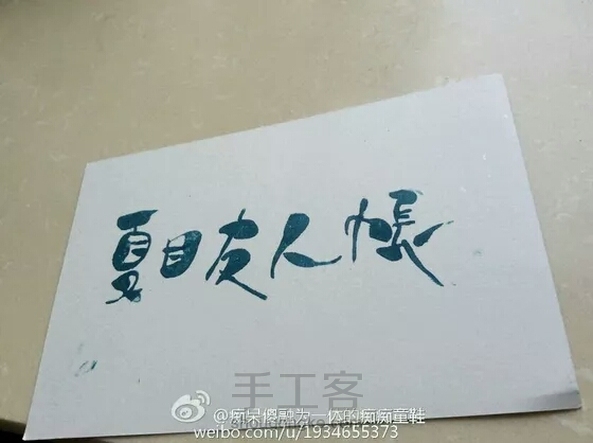 夏目友人帳
手工客
@痴呆傻融为一体的痴痴童鞋
weibo.com/u/1934655373